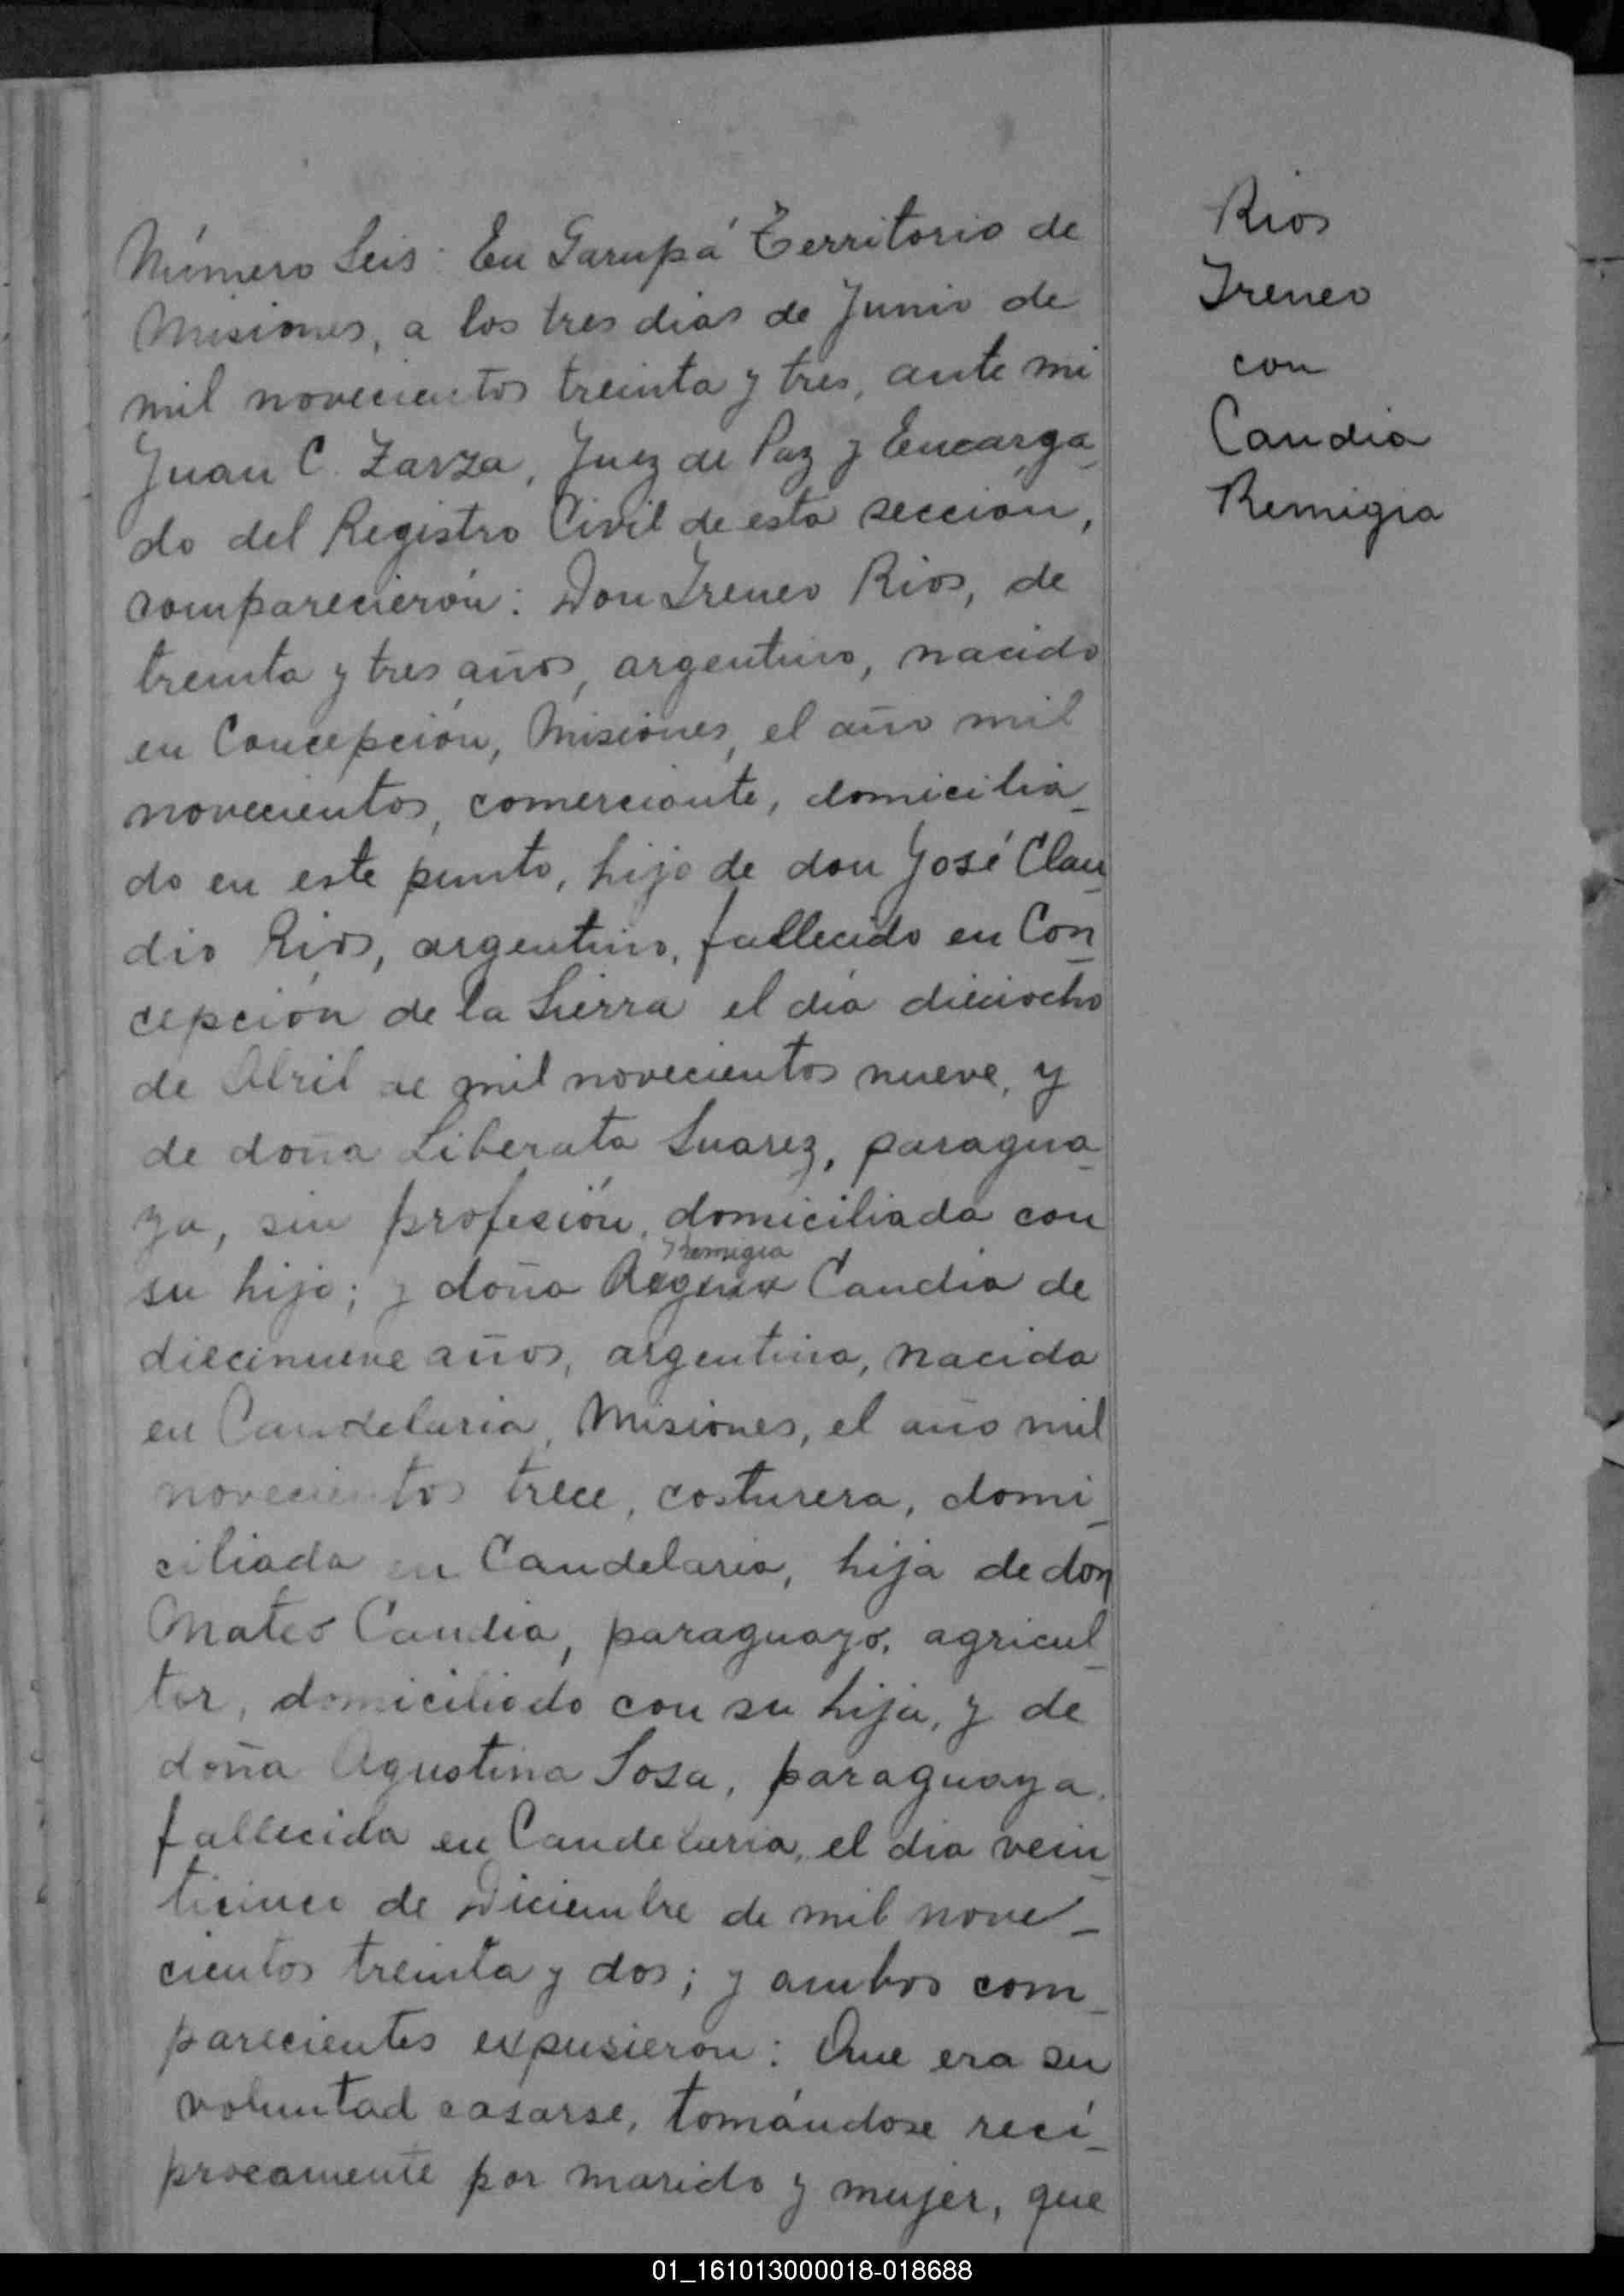 Número Seis: En Garupá Territorio de
Misiones, a los tres dias de Junio de
mil novecientos treinta y tres, ante mi
Juan C. Zarza, Juez de Paz y Encarga_
do del Registro Civil de esta seccion,
comparecierón: Don Ireneo Rios, de
treinta y tres años, argentino, nacido
en Concepción, Misiones, el año mil
novecientos, comerciante, domicilia_
do en este punto, hijo de don José Clau_
dio Rios, argentino, fallecido en Con_
cepción de la Sierra el día dieciocho
de Abril de mil novecientos nueve, y
de doña Liberata Suarez, paragua_
ya, sin profesión, domiciliada con
Remigia
su hijo; y doña Regina Candia de
diecinueve años, argentina, nacida
en Candelaria, Misiones, el año mil
novecientos trece, costurera, domi_
ciliada en Candelaria, hija de don
Mateo Candia, paraguayo, agricul_
tor, domiciliado con su hija, y de
doña Agustina Sosa, paraguaya,
fallecida en Candelaria, el dia vein_
ticinco de Diciembre de mil nove_
cientos treinta y dos; y ambos com_
parecientes expusieron: Que era su
voluntad casarse, tomándose recí_
procamente por marido y mujer, que
Rios
Ireneo
con
Candia
Remigia
01_161013000018-018688